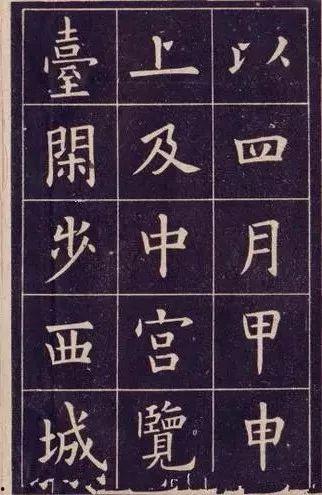 以四月甲申
上及中宮覽
臺閑步西城